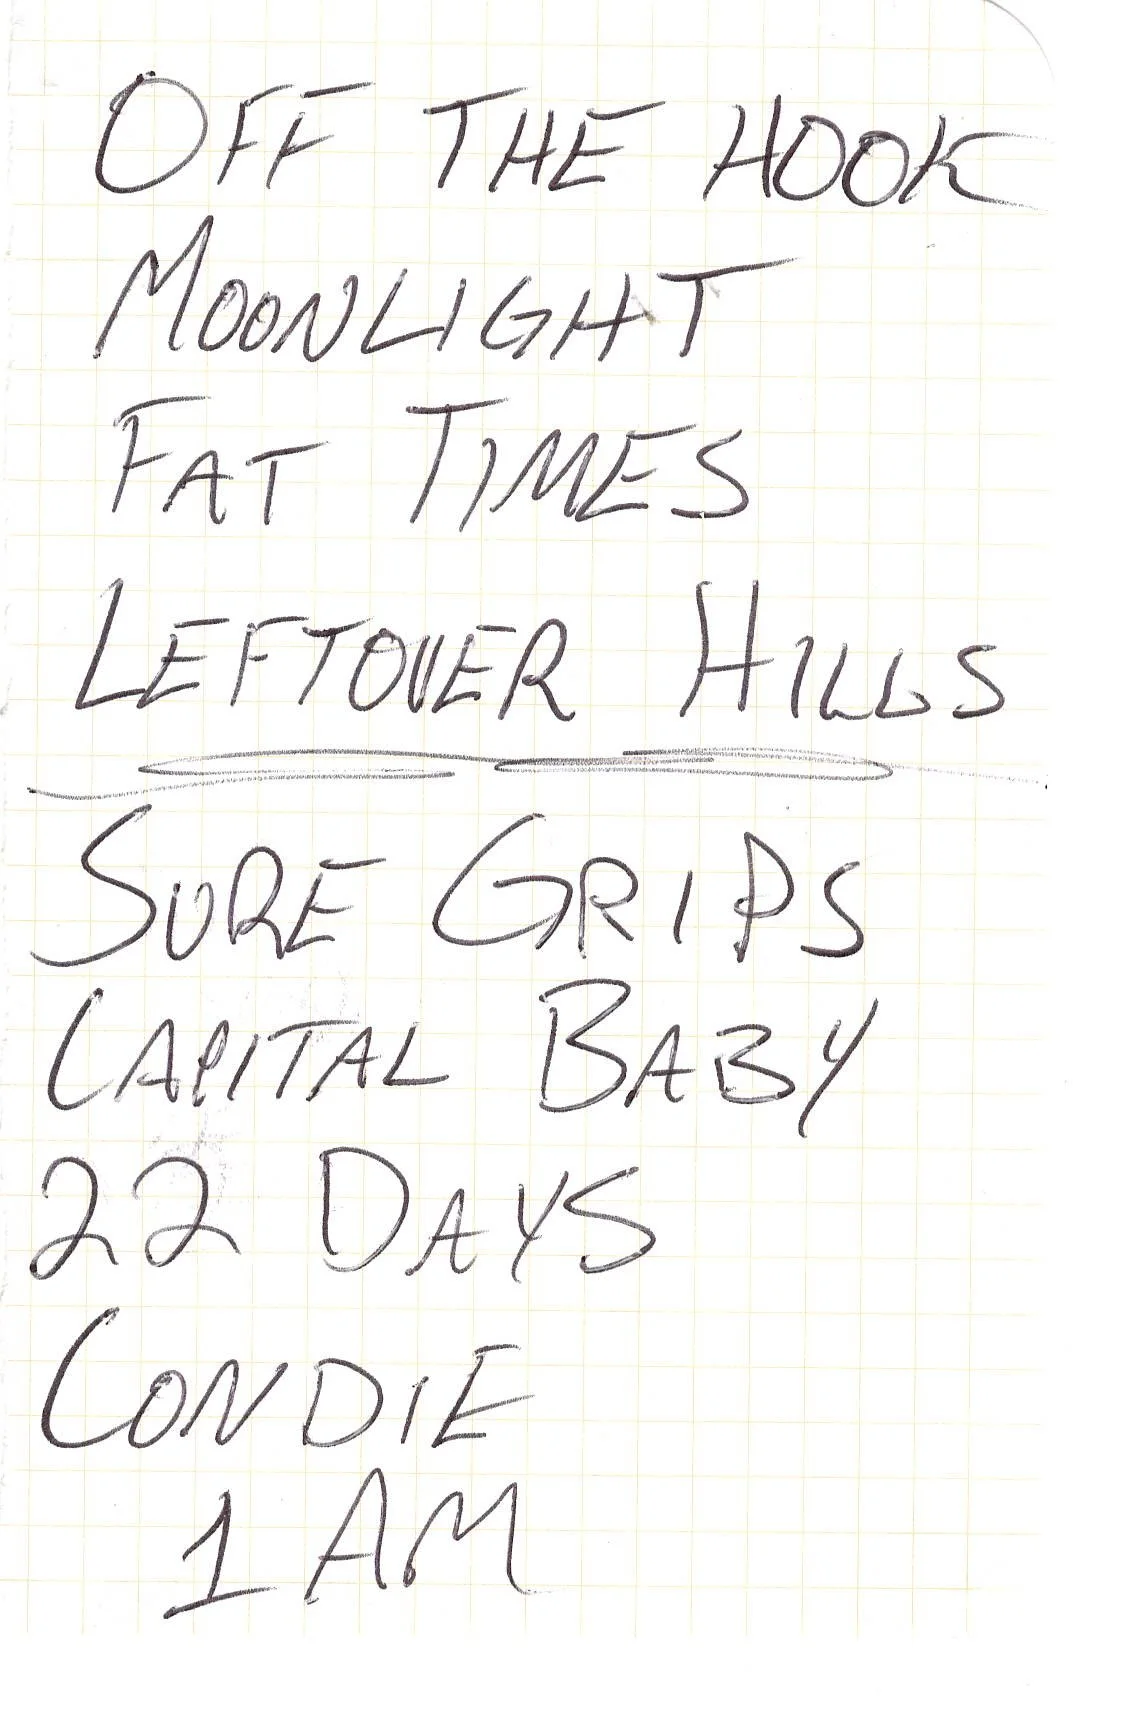 OFF THE HOOK
MOONLIGHT
FAT TIMES
LEFTOVER HILLS
SURE GRIPS
CAPITAL BABY
22 DAYS
CONDIE
1 AM